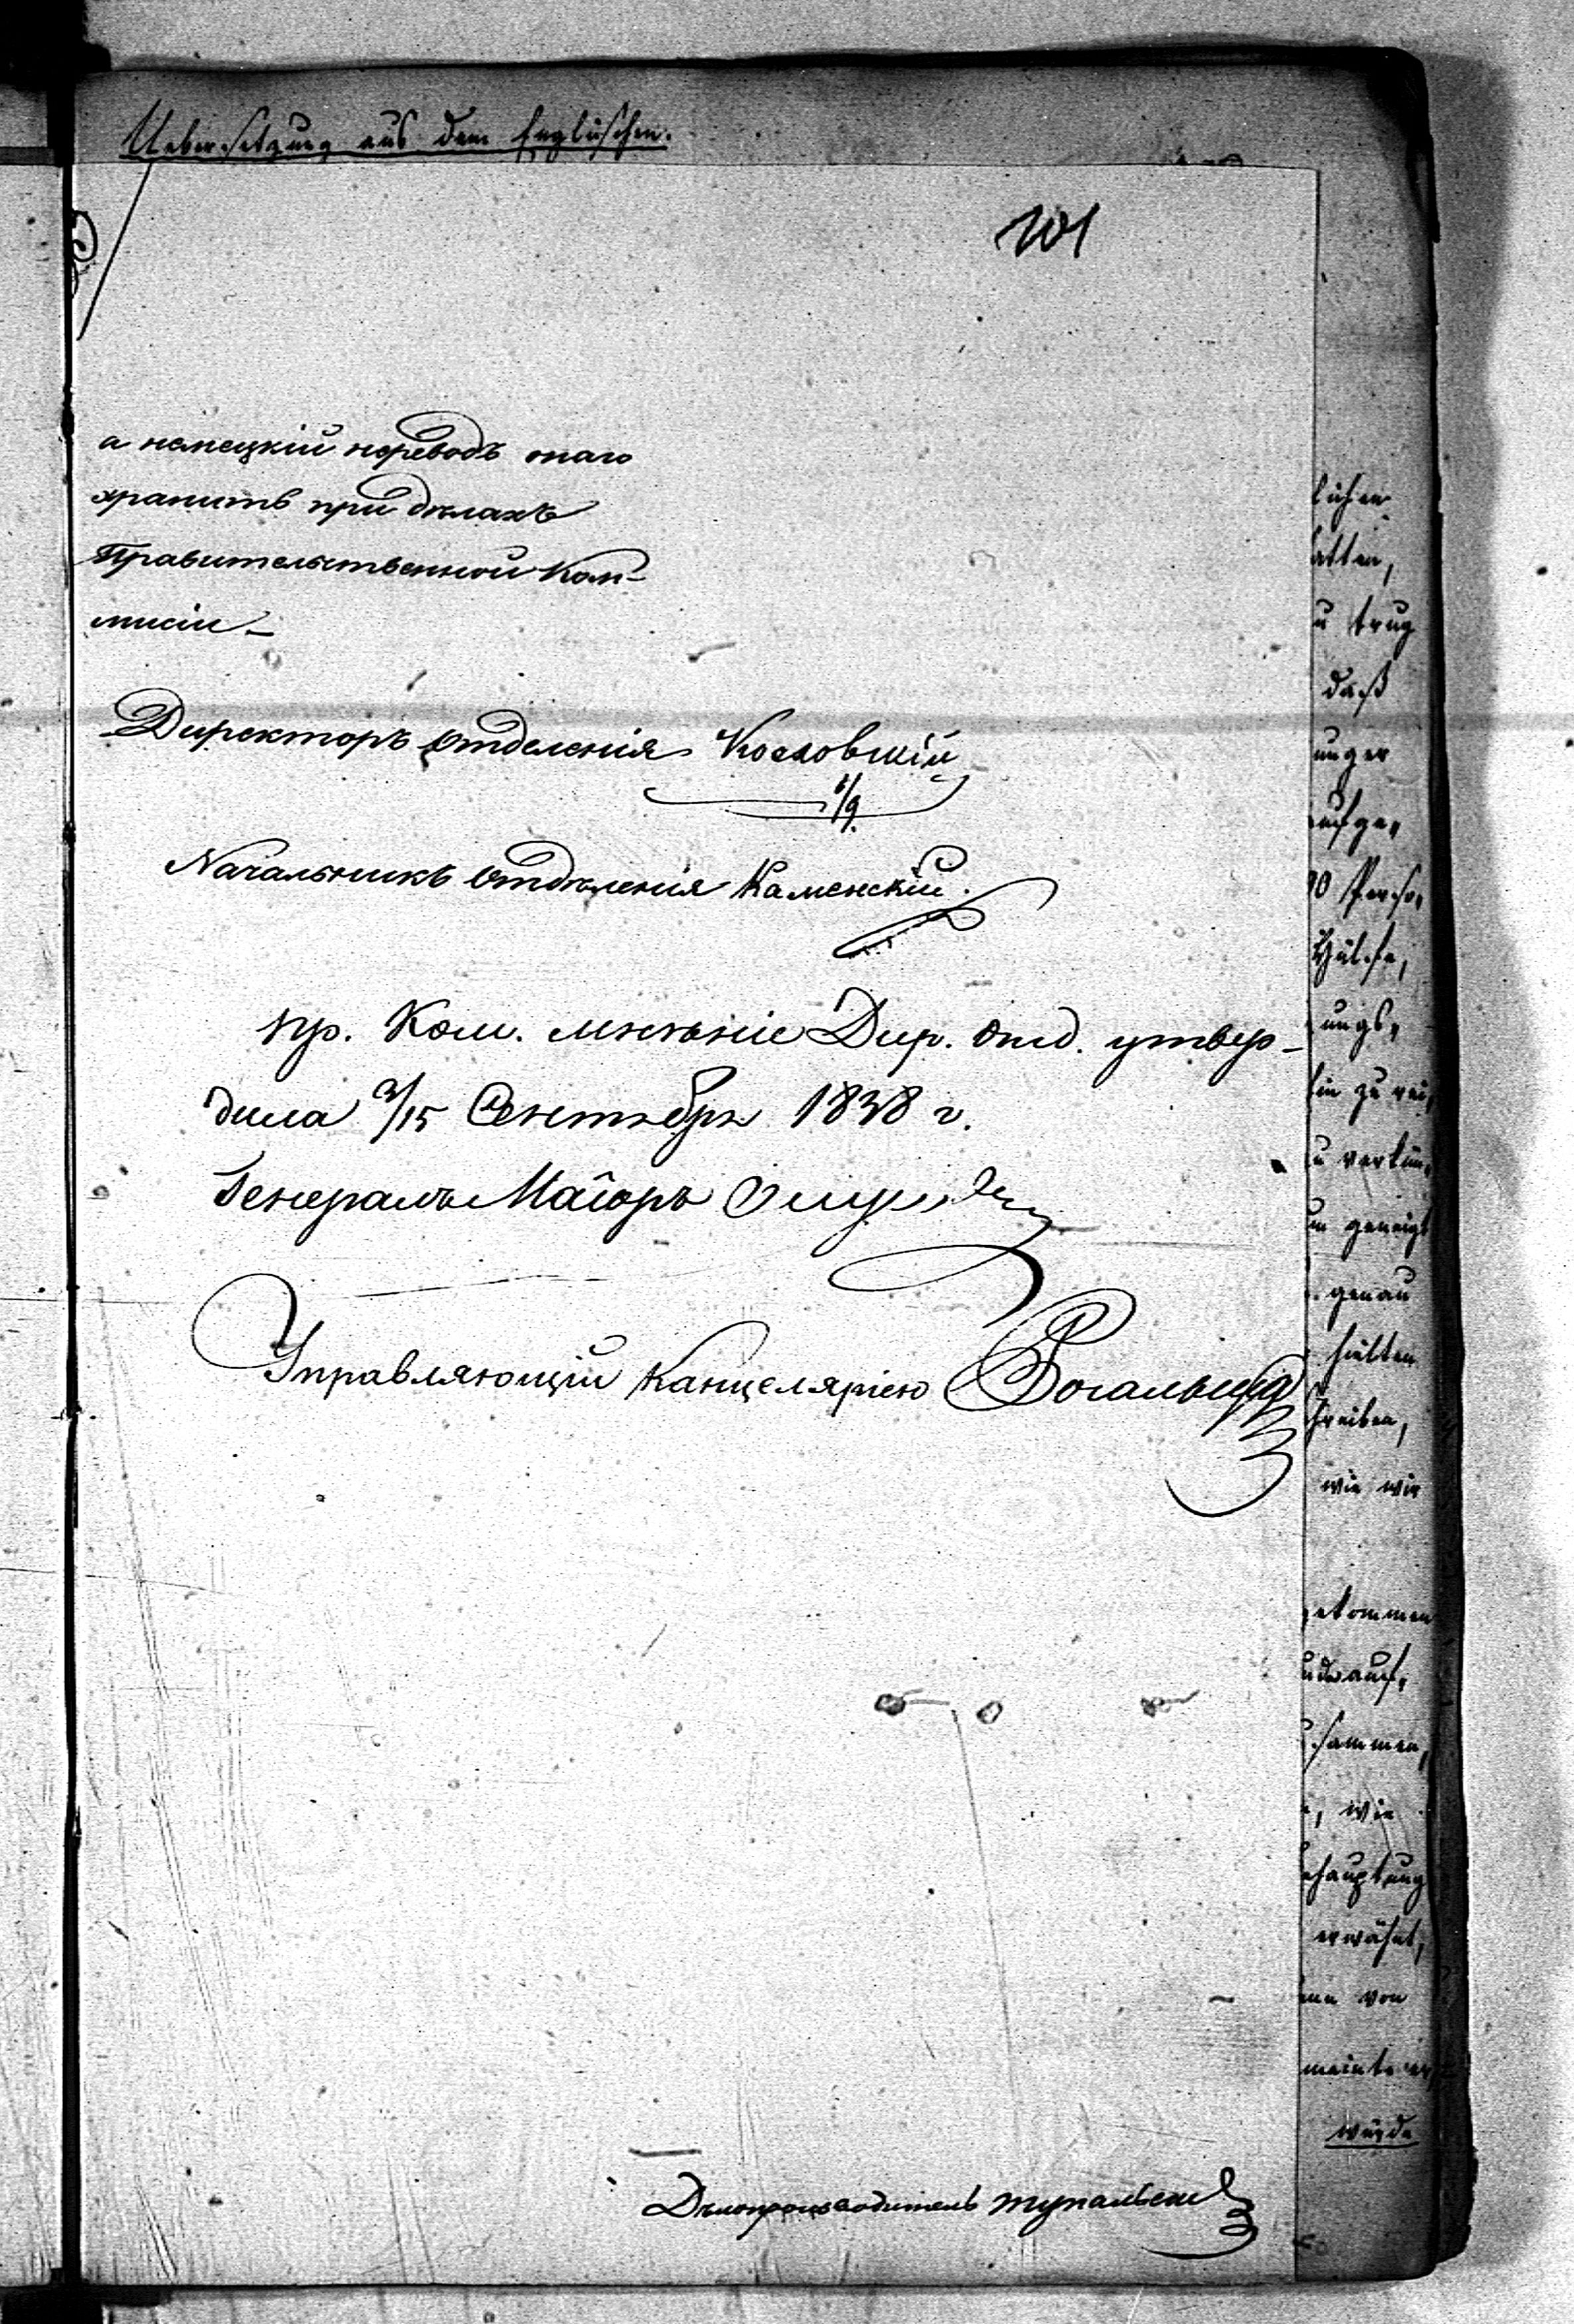 Uebersetzung aus dem Englischen.
101
а немецкій переводъ онаго
хранить при дѣлахъ
Правительственной Ком-
мисіи_
Директоръ Отделенія Козловскій
/9.
Начальникъ Отдѣленія Каменскій.
пр. Ком. мнѣніе Дир. отд. утвер-
дила 3/15 Сентября 1838 г.
Генералъ Маіоръ
Управляющій Канцеляріею
Дѣлопроизводитель
lichen
atten,
u trug
daß
unger
aufge,
0 Perso,
Hülfe,
ungs,
hin zu rei,
u verkün,
geneigt
genau
hielten
hreiben,
wie wir
gekommen
sammen,
, wie
ehauptung
erwähnt,
von
meinte er,
würde